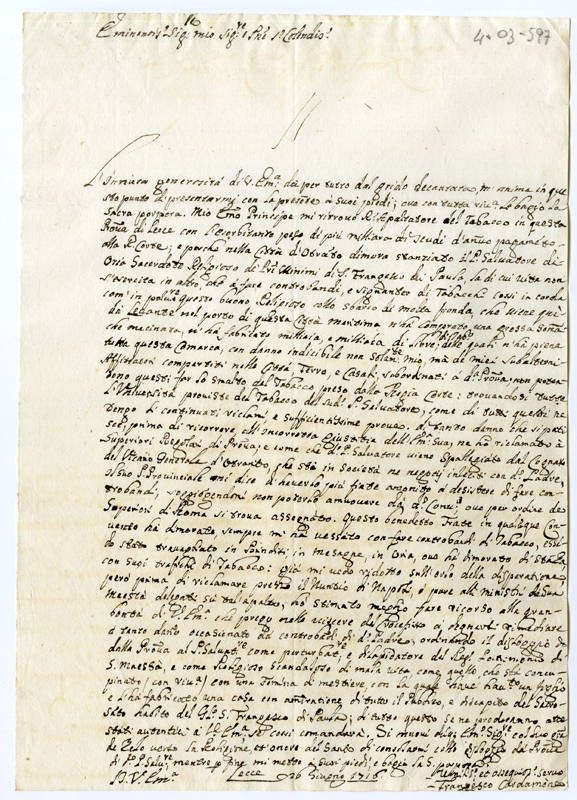 Eminentis.º Sig.r mio Sig.re e Pñe Colendis.º
4-03-597
L'Innata generosità di V. Em.a da per tutto dal grido decantata, m'anima in que
sto punto di presentarmi con la presente a suoi piedi; ove con tutta riv.a Le baggio la
Sacra porpora. Mio Emo Principe mi ritrovo R.º Appaltatore del Tabacco in questa
Prov̄a di Lecce con l'esorbitante peso di più milliara di scudi d'annuo pagamento
alla R. Corte; e perche nella Città d'Otranto dimora stanziato il P. Salvatore di
Oria Sacerdote Religioso de PP. Minimi di S. Francesco di Paula, la di cui vita non
s'esercita in altro, che a fare controbandi, e signanter di Tabacchi così in corda
com' in polvere questo buono Religioso collo sbarco di molta fronda, che viene quì
da Levante nel porto di questa Città maritima n'hà comprato una grossa
che macinata, n'hà fabricato milliaia, e milliaia di libre; delle quali n'ha piena
tutta questa Comarca, con danno indicibile non solam.te mio, mà de miei subalterni
Affittatori compartiti nelle Città, Terre, e Casali subordinati a d.a Prov̄a; non poten
dono questi far lo smalto del Tabacco preso dalla Regia Corte: trovandosi tutte
l'Università provviste del Tabacco del sud.o P. Salvatore; come di tutto questo ne
tengo di continuati riclami e sufficientissime prove. Di tanto danno che si pati
sce, prima di ricorrere all'Incorrotta Giustitia dell' sua, ne hò riclamato à
Superiori Regolari di Prov̄a; e come che d.o P. Salvatore viene spalleggiato dal Cognato
del Vicario Generale d'Otranto, che stà in società ne negozij inleciti con d.o Padre,
esso P. Provinciale mi dice d'haverlo più fiate ammonito a desistere di fare con
trobandi, soggiogendomi non poterlo amuovere da d.o Conv.o; ove per ordine de
Superiori di Roma si trova assegnato. Questo benedetto Frate in qualsique Con
vento hà dimorato, sempre mi hà vessato con fare controbandi di Tabacco, essen
do stato travagliato in Brindisi, in Mesagne, in Oria, ove hà dimorato di stanza
con suoi traffichi di Tabacco: Già mi vedo ridotto sull'orlo della disperatione
però prima di riclamare presso il Nuntio di Napoli, ò pure alli Ministri de Sua
Maestà deleg.ti sù tal'appalto, hò stimato meglio fare ricorso alla gran
bontà di V. Em.a che prego nelle viscere di Giesù Cristo si degnarsi rimediare
a tanto danno occasionato da controbandi di d.o Padre; ordinando il disloggio
dalla Prov̄a al P. Salvat.re come perturbat.re e dilapidatore del Reg.o Patrimonio di
S. Maestà, e come Religioso scandaloso di mala vita come quello, che stà concu
pinato / con riv.a / con una femina di mestiere, con la quale have havuto un figlio
e l'hà fabricato una casa con ammiratione di tutto il Publico, e discapito del Sagro
Santo habito del Gl. S. Francesco di Paula; di tutto questo se ne prodoranno atte
stati autentici à V. Em.a se così comandarà. Di nuovo
de Zelo verso la Religione, et onore del Santo di consolarmi collo disloggio da d.a Prov̄a
di P. Salv.re; mentre per fine mi metto a suoi piedi, e bagio la S. porpora
D. V. Em.a
Lecce 26 Giugno 1716
Umiliss.o et ossequios.o Servo
Francesco Cardamone